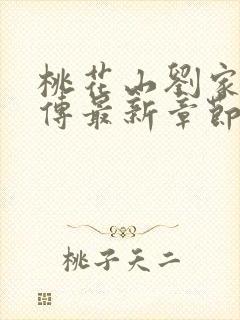 桃花山劉家
傳最新章節
桃子天二